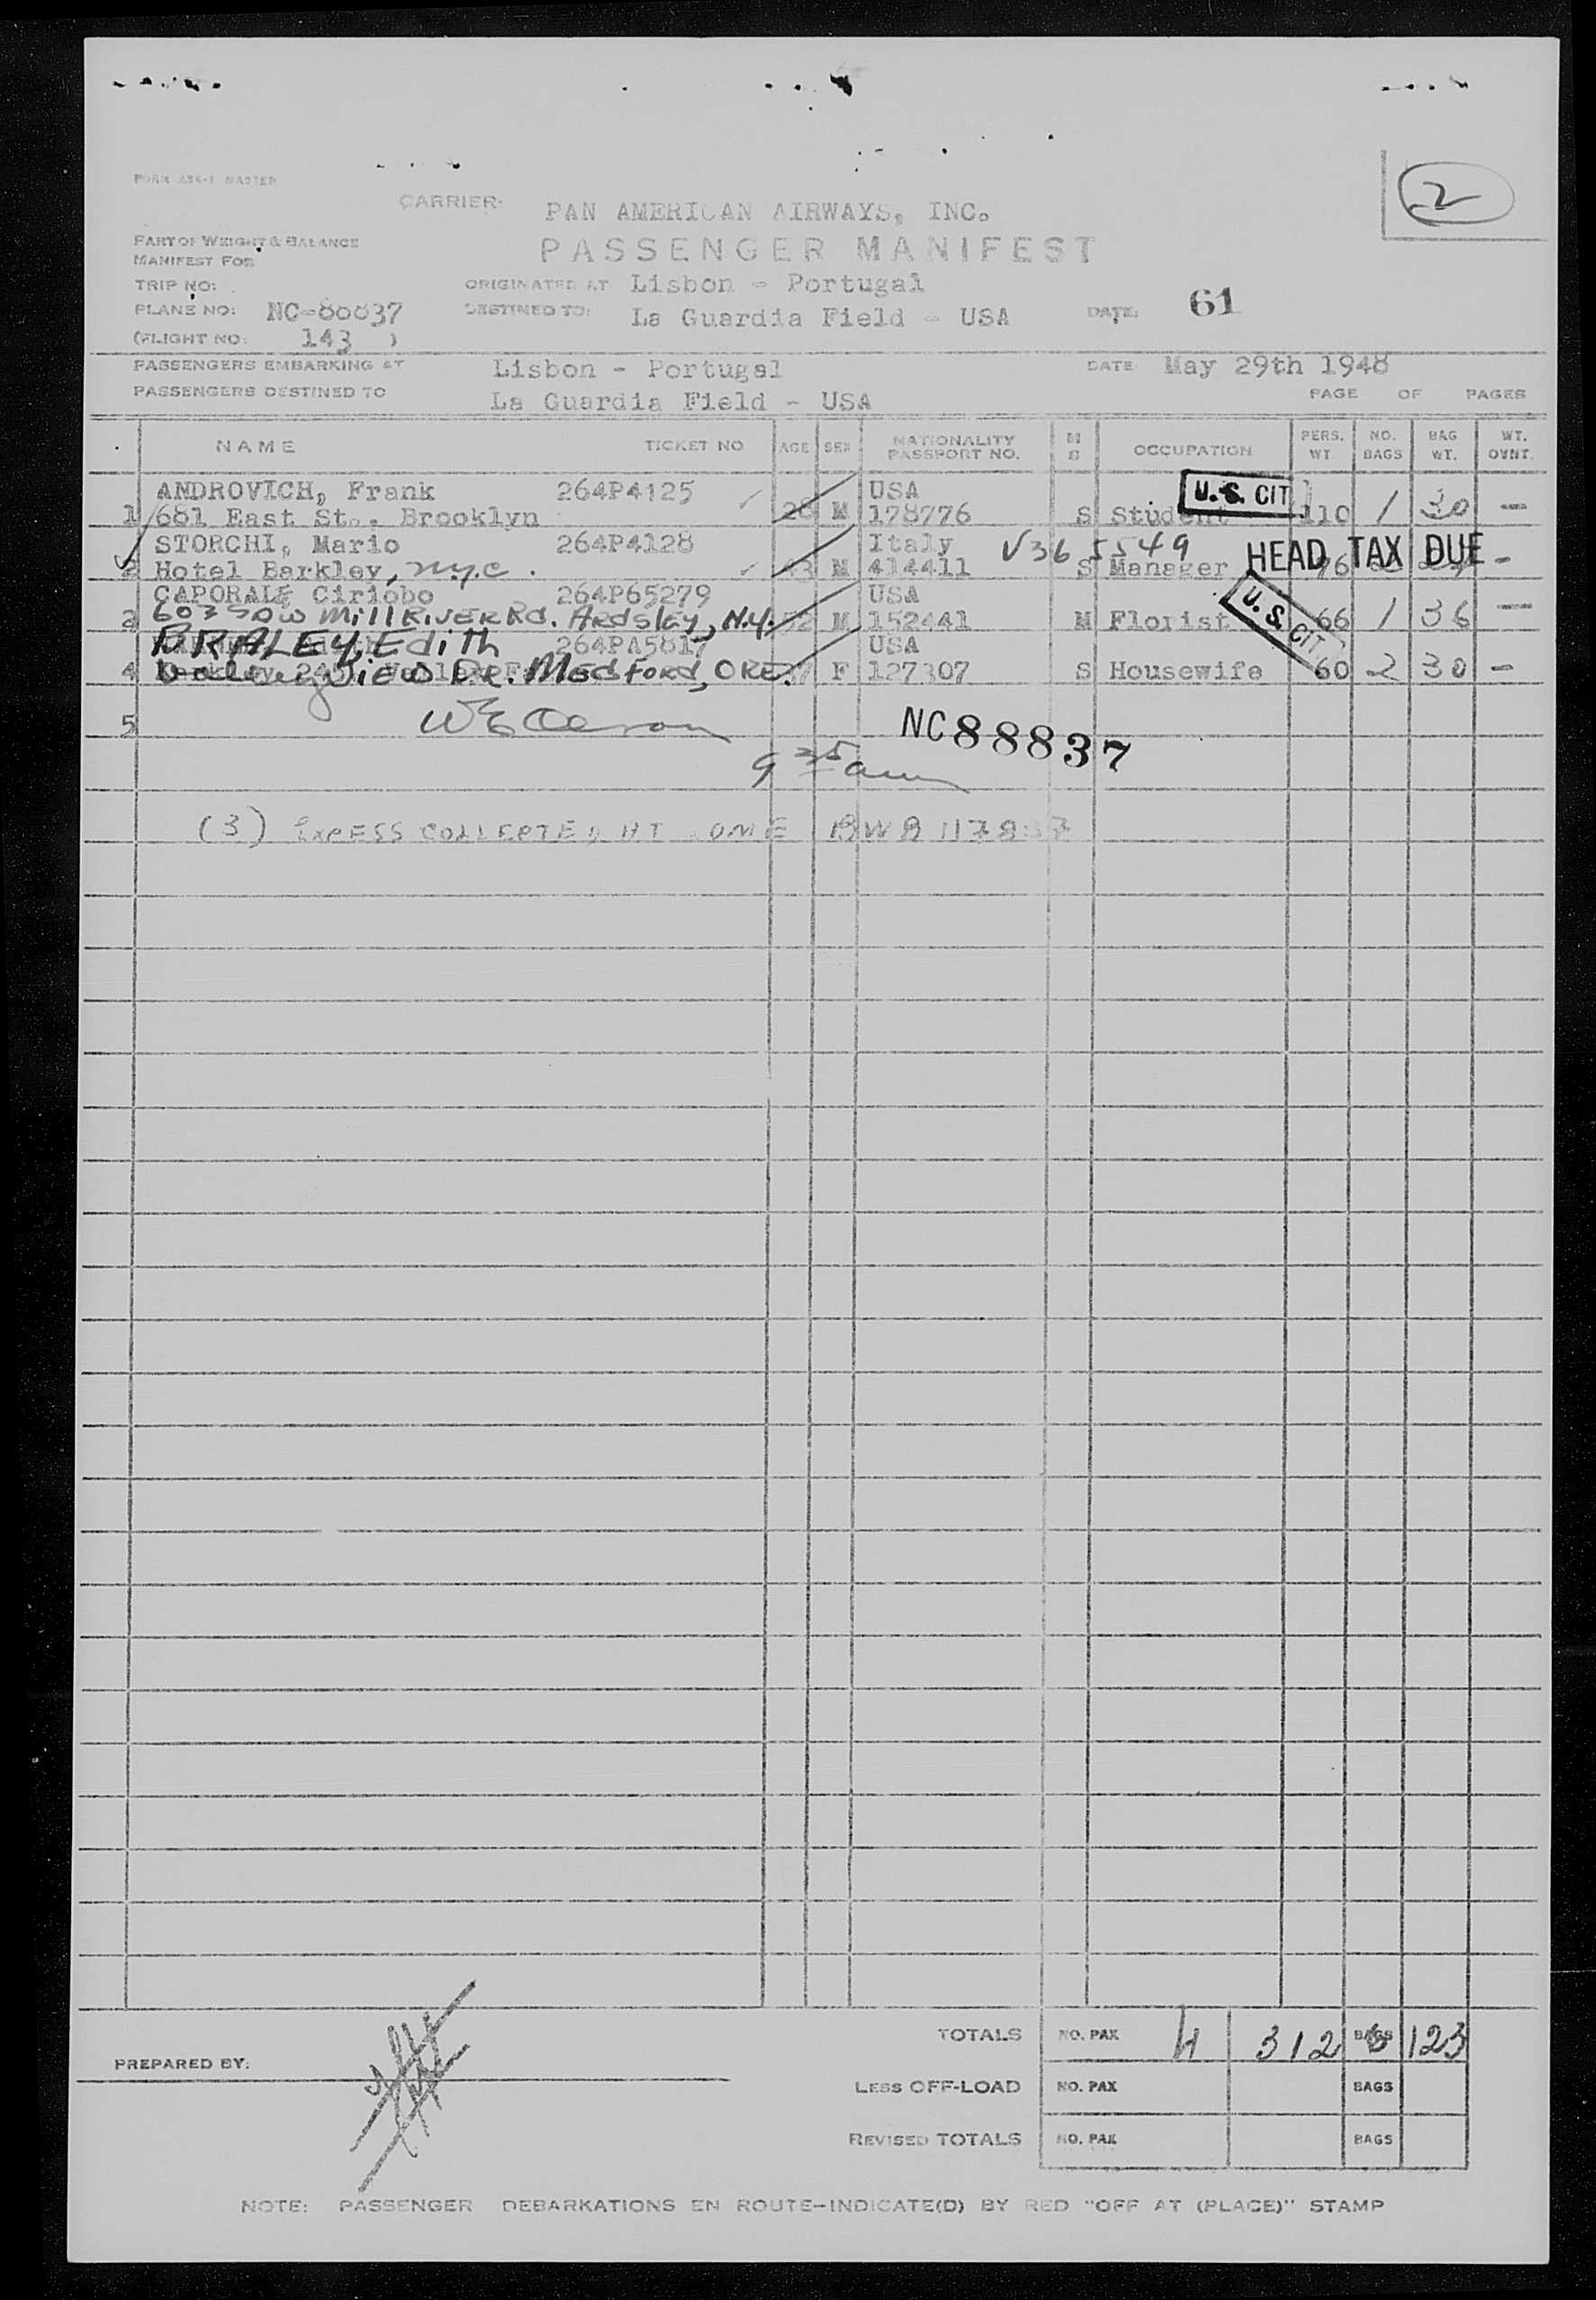 2
FORM 234-1 MASTER
CARRIER: PAN AMERICAN AIRWAYS, INC.
PART OF WEIGHT & BALANCE
MANIFEST FOR
PASSENGER MANIFEST
TRIP NO:
ORIGINATED AT Lisbon - Portugal
PLANE NO: NC-88837
DESTINED TO: La Guardia Field - USA
DATE: 61
(FLIGHT NO. 143 )
PASSENGERS EMBARKING AT Lisbon - Portugal DATE May 29th 1948
PASSENGERS DESTINED TO La Guardia Field - USA
PAGE OF PAGES
NAME TICKET NO AGE SEX NATIONALITY PASSPORT NO. M S OCCUPATION PERS. WT NO. BAGS BAG WT. WT. OVNT.
ANDROVICH, Frank 264P4125 USA U.S. CIT
1 681 East St., Brooklyn 28 M 178776 S Student 110 1 30 -
STORCHI, Mario 264P4128 Italy V365549 HEAD TAX DUE
2 Hotel Barkley, N.Y.C. M 414411 S Manager 76 -
CAPORALE Ciriobo 264P65279 USA U.S. CIT
3 603 SAW Mill RiVER Rd. ARdsley, N.Y. 52 M 152441 M Florist 66 1 36 -
BRALEY, Edith 264PA5817 USA
4 ViEW DR. MEdFORd, ORE. F 127307 S Housewife 60 2 30 -
5
NC88837
9 35 am
(3) EXCESS COLLECTED AT ROME
PREPARED BY:
TOTALS NO. PAX 4 312 BAGS 123
LESS OFF-LOAD NO. PAX BAGS
REVISED TOTALS NO. PAX BAGS
NOTE: PASSENGER DEBARKATIONS EN ROUTE-INDICATE(D) BY RED "OFF AT (PLACE)" STAMP